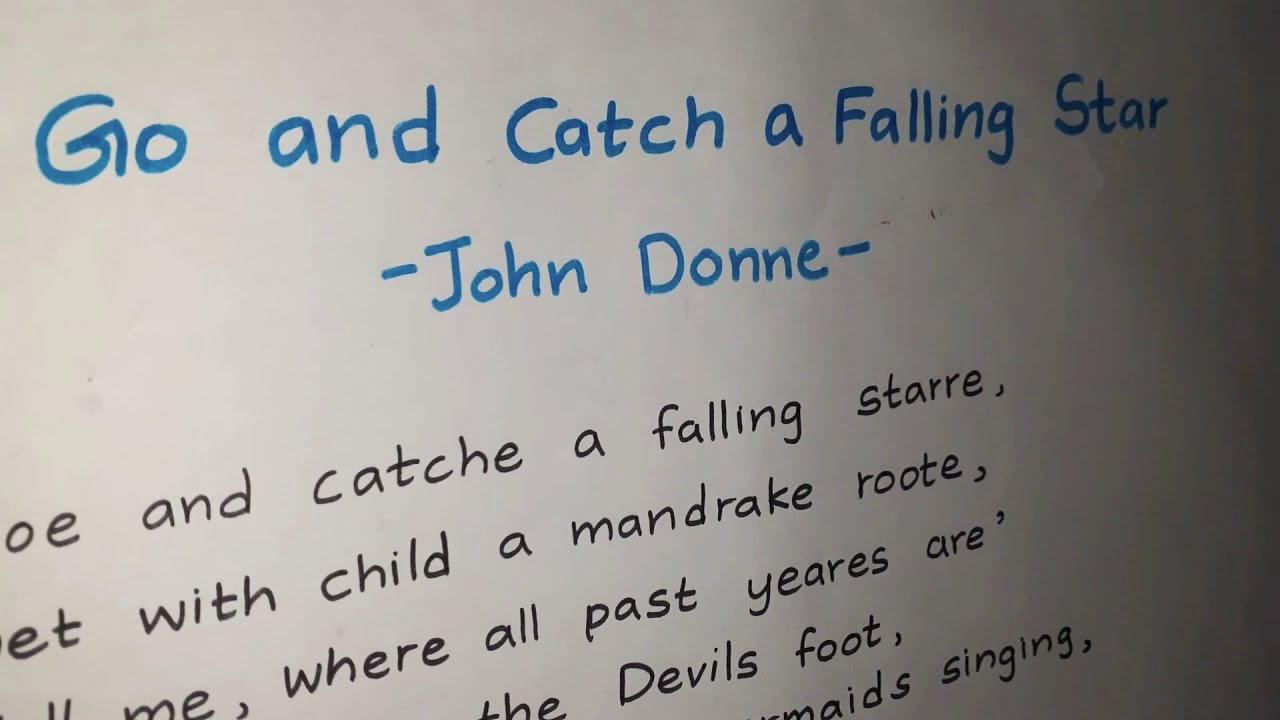 Go and Catch a Falling Star
-John Donne-
oe and catche a falling starre,
et with child a mandrake roote,
me, where all past yeares are’
the Devils foot,
singing,